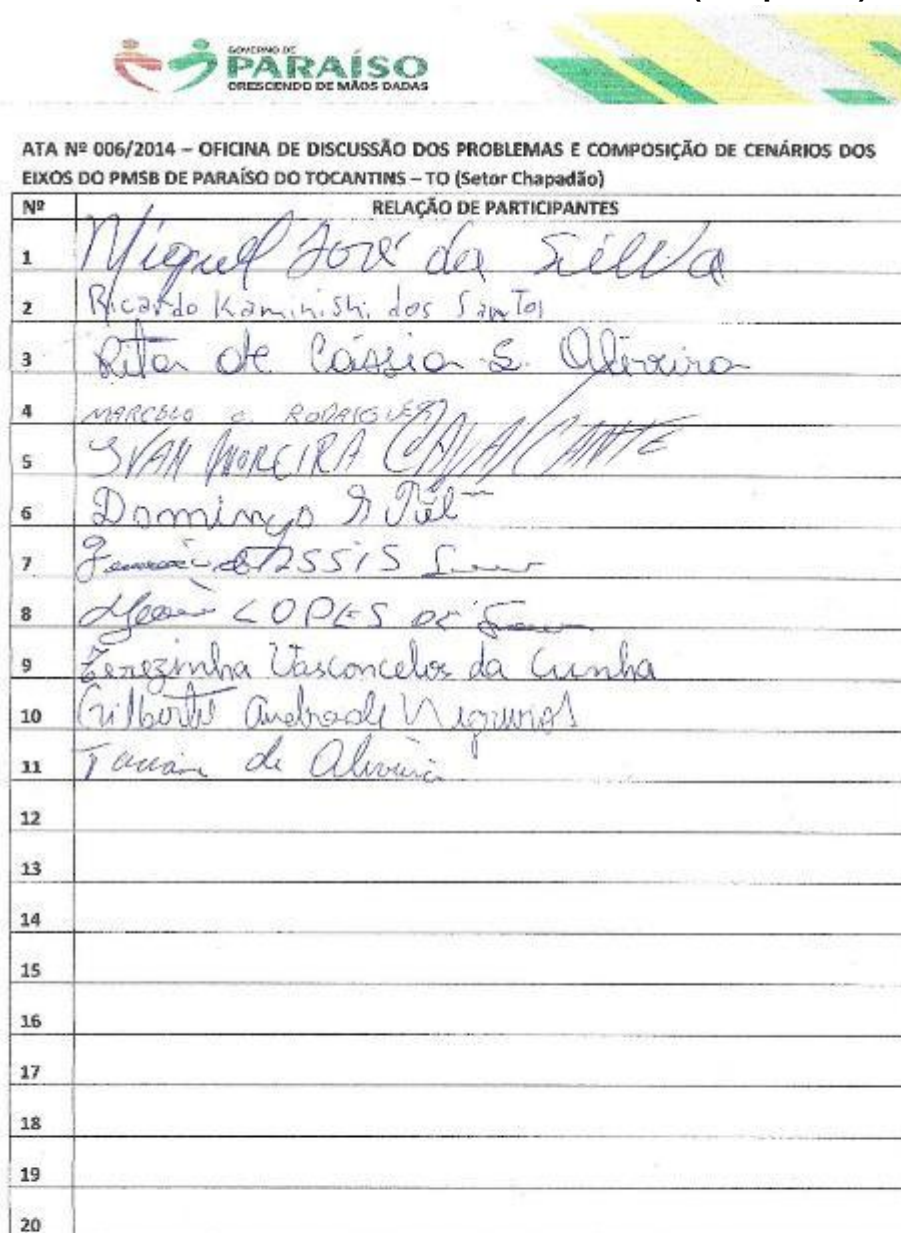 GOVERNO DE
PARAÍSO
CRESCENDO DE MÃOS DADAS
ATA Nº 006/2014 – OFICINA DE DISCUSSÃO DOS PROBLEMAS E COMPOSIÇÃO DE CENÁRIOS DOS
EIXOS DO PMSB DE PARAÍSO DO TOCANTINS – TO (Setor Chapadão)
Nº RELAÇÃO DE PARTICIPANTES
1 Miguel José da Siellva
2 Ricardo Kaminishi dos Santos
3 Rita de Cássia S. Oliveira
4 MARCELO C. RODRIGUES
5 IVAN MOREIRA CAVALCANTE
6 Domingo
7 ASSIS
8 LOPES DE
9 Terezinha Vasconcelos da Cunha
10 Gilberto Andrade
11 de Oliveira
12
13
14
15
16
17
18
19
20